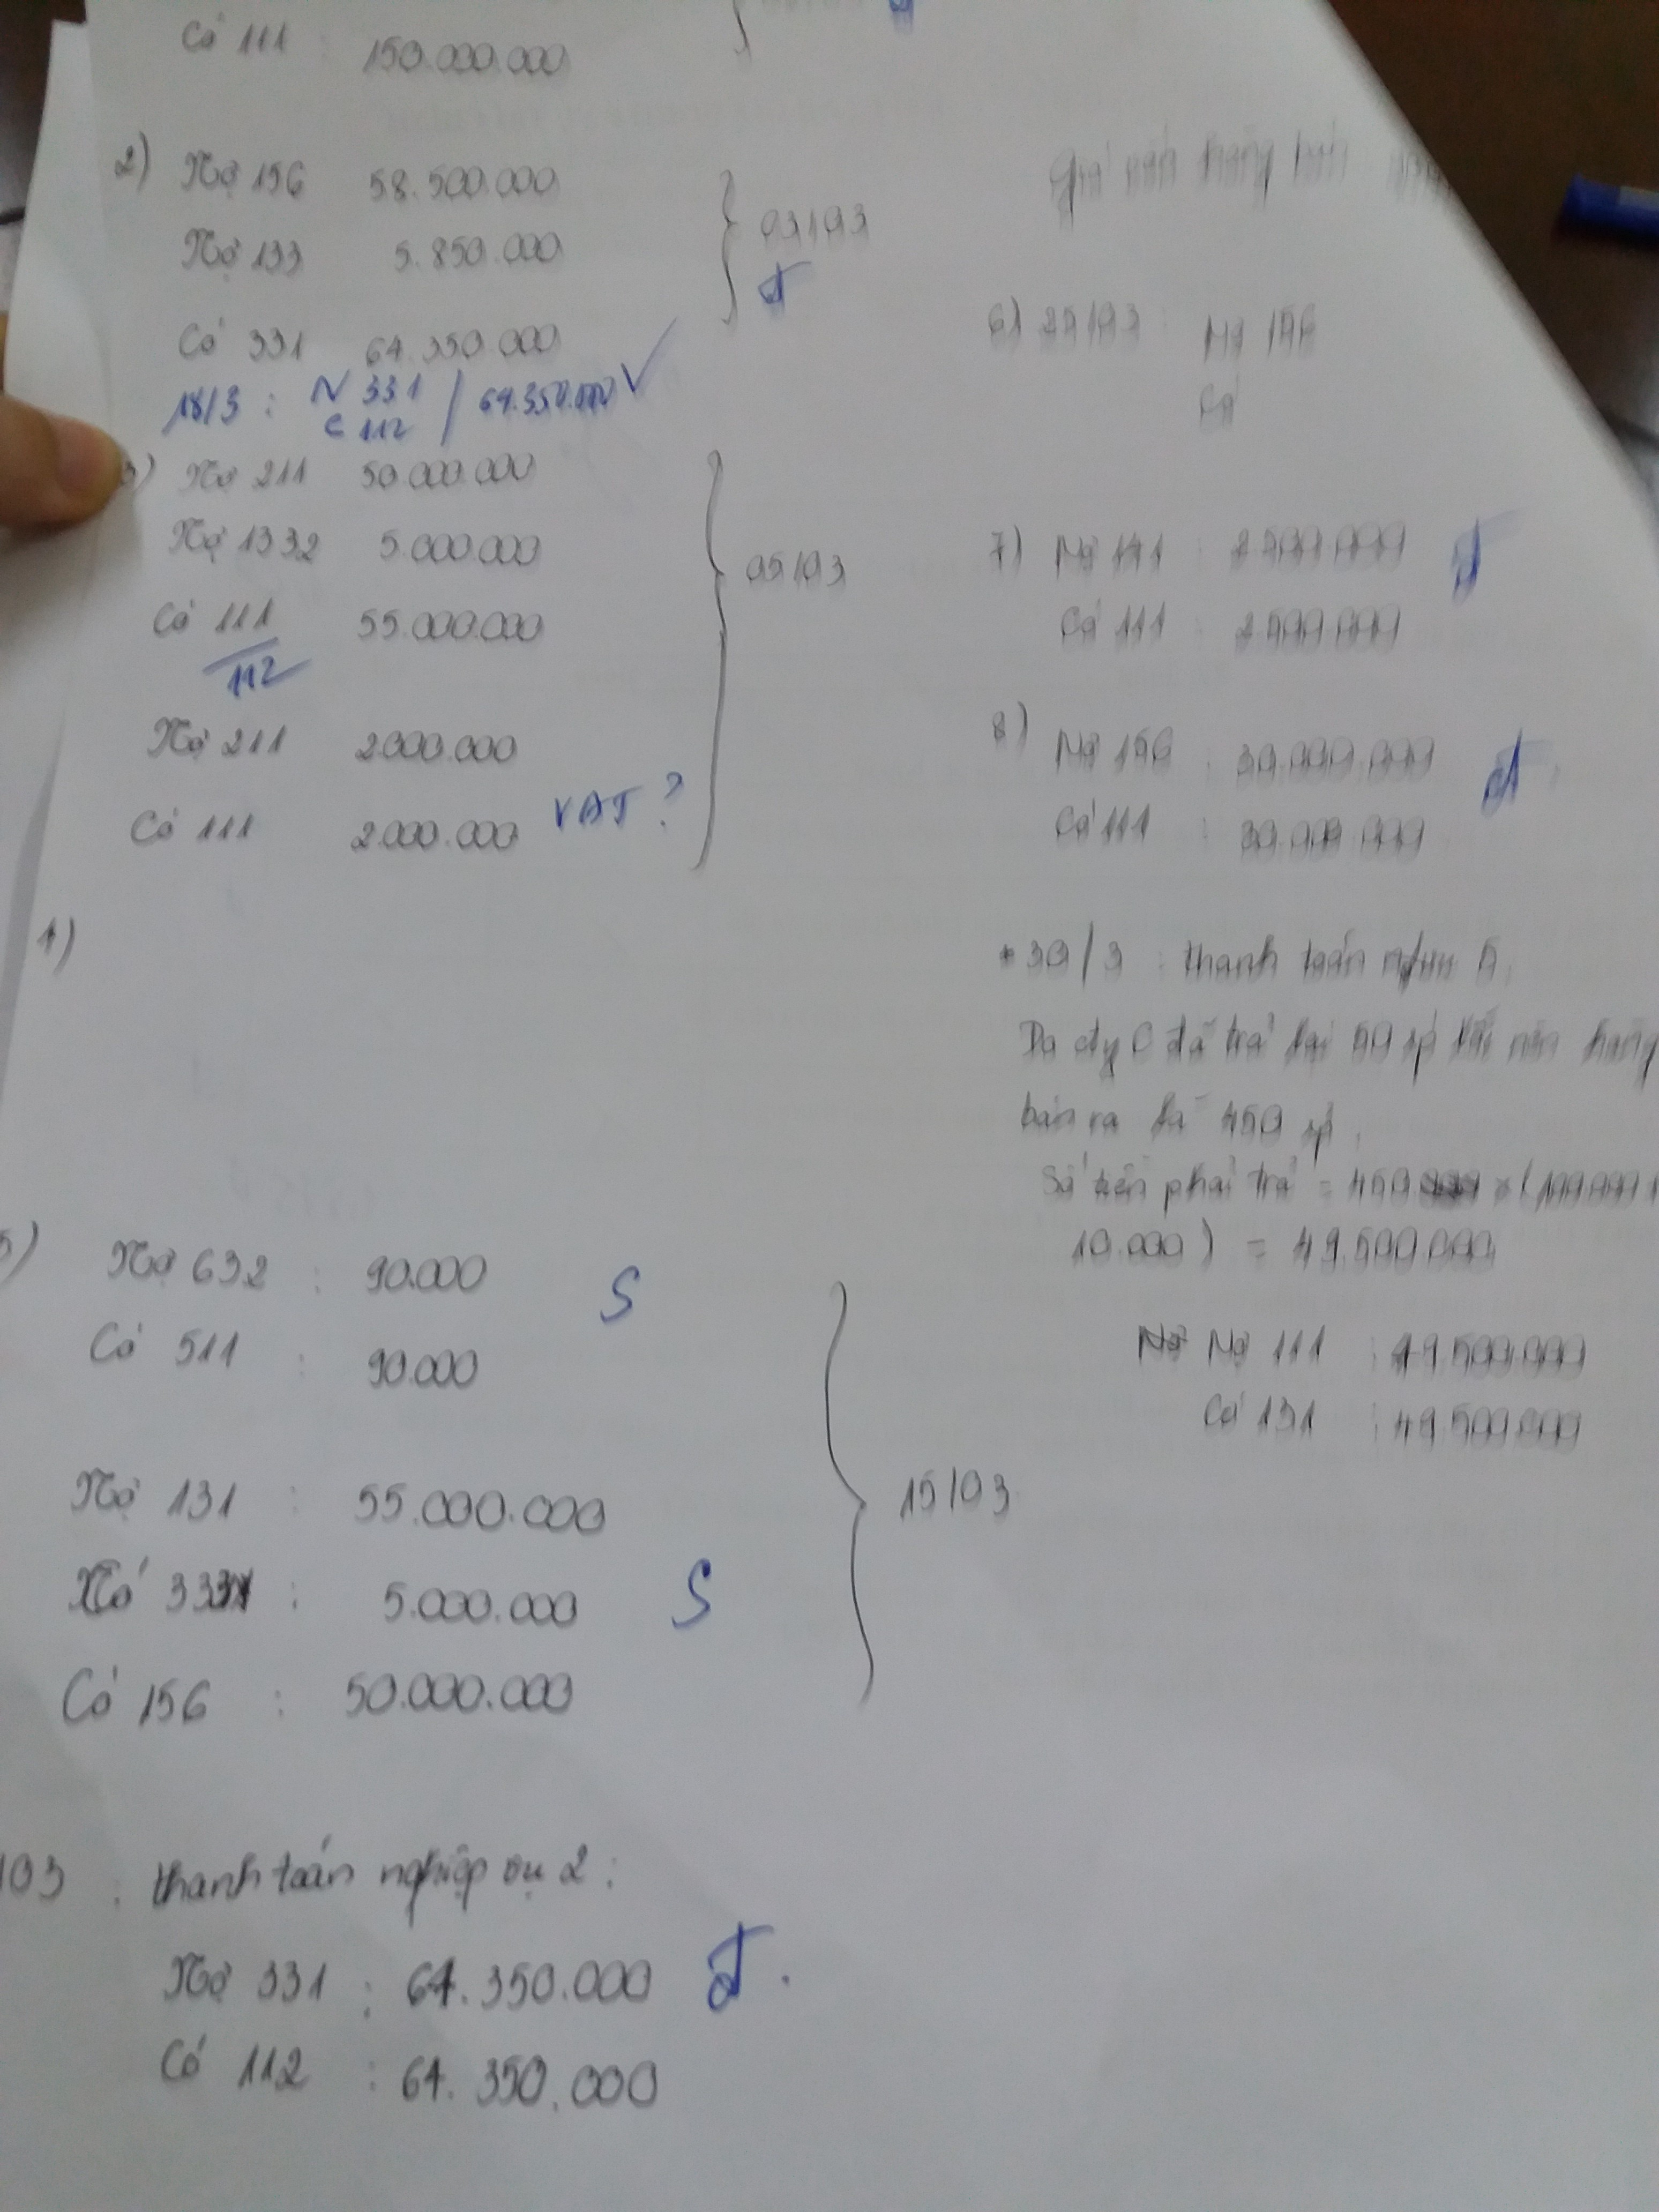 Có 111 : 150.000.000
2) Nợ 156 58.500.000
Nợ 133 5.850.000
Có 331 64.350.000
03/03
đ
18/3 : N 331 / 64.350.000 ✓
C 112
3) Nợ 211 50.000.000
Nợ 1332 5.000.000
Có 111 55.000.000
112
05/03
Nợ 211 2000.000
Có 111 2.000.000 VAT ?
4)
5) Nợ 632 : 90.000 S
Có 511 : 90.000
Nợ 131 : 55.000.000
Có 3331 : 5.000.000 S
Có 156 : 50.000.000
15/03
/03 : thanh toán nghiệp vụ 2 :
Nợ 331 : 64.350.000 đ.
Có 112 : 64.350.000
Giá vốn hàng bán
6) 25/03 : Nợ 156
Có
7) Nợ 141 : 2500.000 đ
Có 111 : 2.500.000
8) Nợ 156 : 30.000.000 đ
Có 111 : 30.000.000
* 30/3 : thanh toán 5.
Do cty C đã trả lại 50 sp lỗi nên hàng
bán ra là 450 sp.
Số tiền phải trả = 450 x (100.000 +
10.000) = 49.500.000
Nợ 111 : 49.500.000
Có 131 : 49.500.000